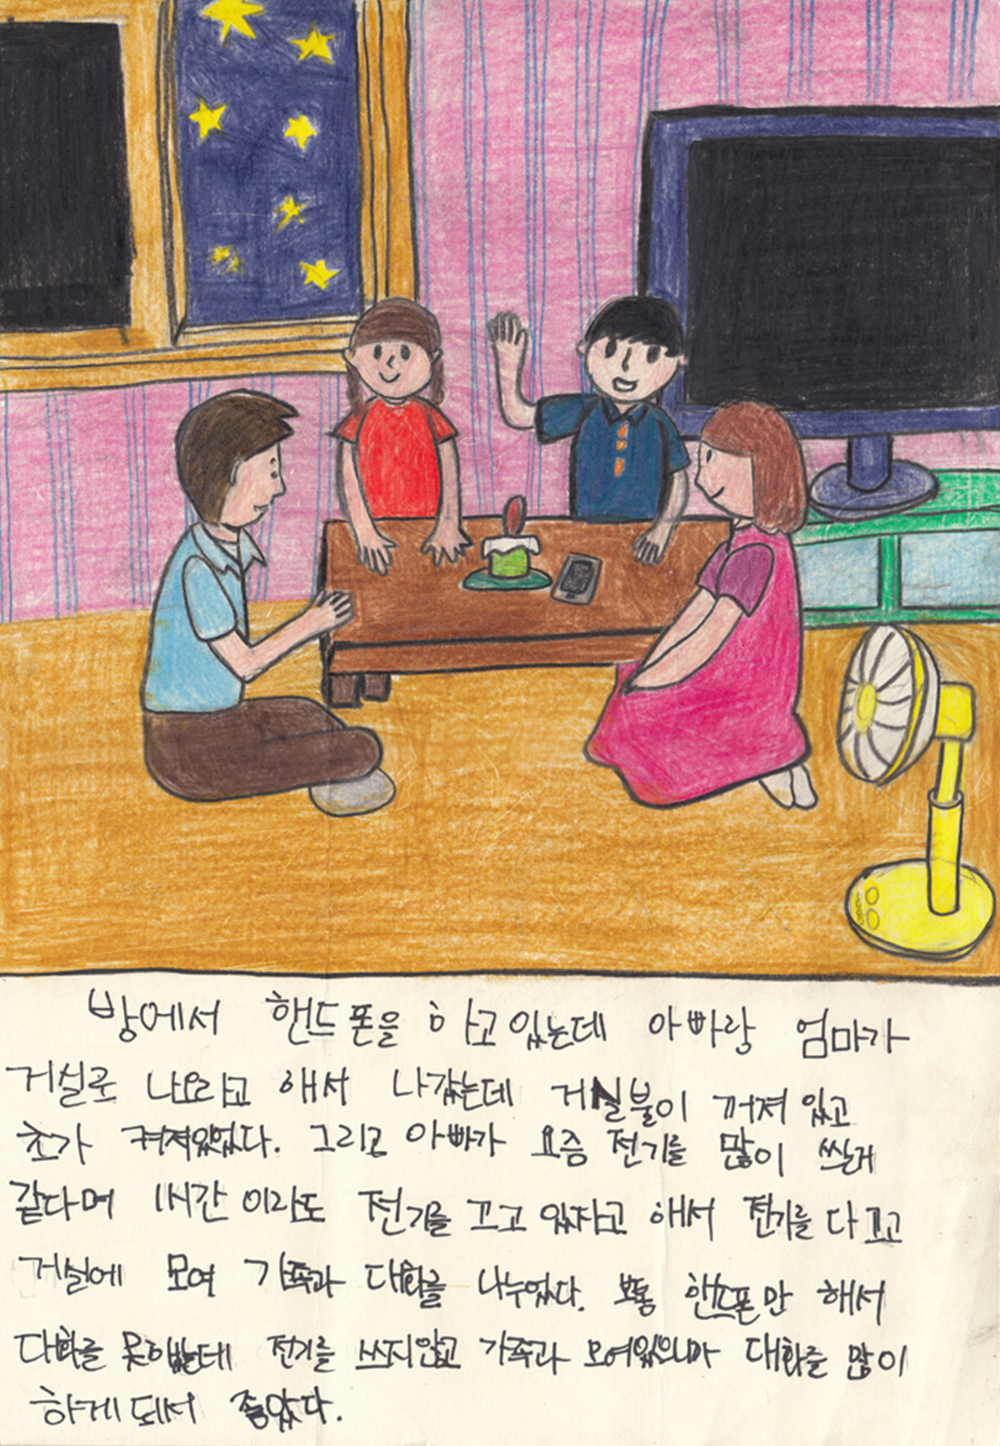 방에서 핸드폰을 하고 있는데 아빠랑 엄마가
거실로 나오라고 해서 나갔는데 거실불이 꺼져 있고
초가 켜져있었다. 그리고 아빠가 요즘 전기를 많이 쓰는게
같다며 1시간 이라도 전기를 끄고 있자고 해서 전기를 다 끄고
거실에 모여 가족과 대화를 나누었다. 보통 핸드폰만 해서
다화를 못해봤는데 전기를 쓰지않고 가족과 모여있으니까 대화를 많이
하게 되서 좋았다.